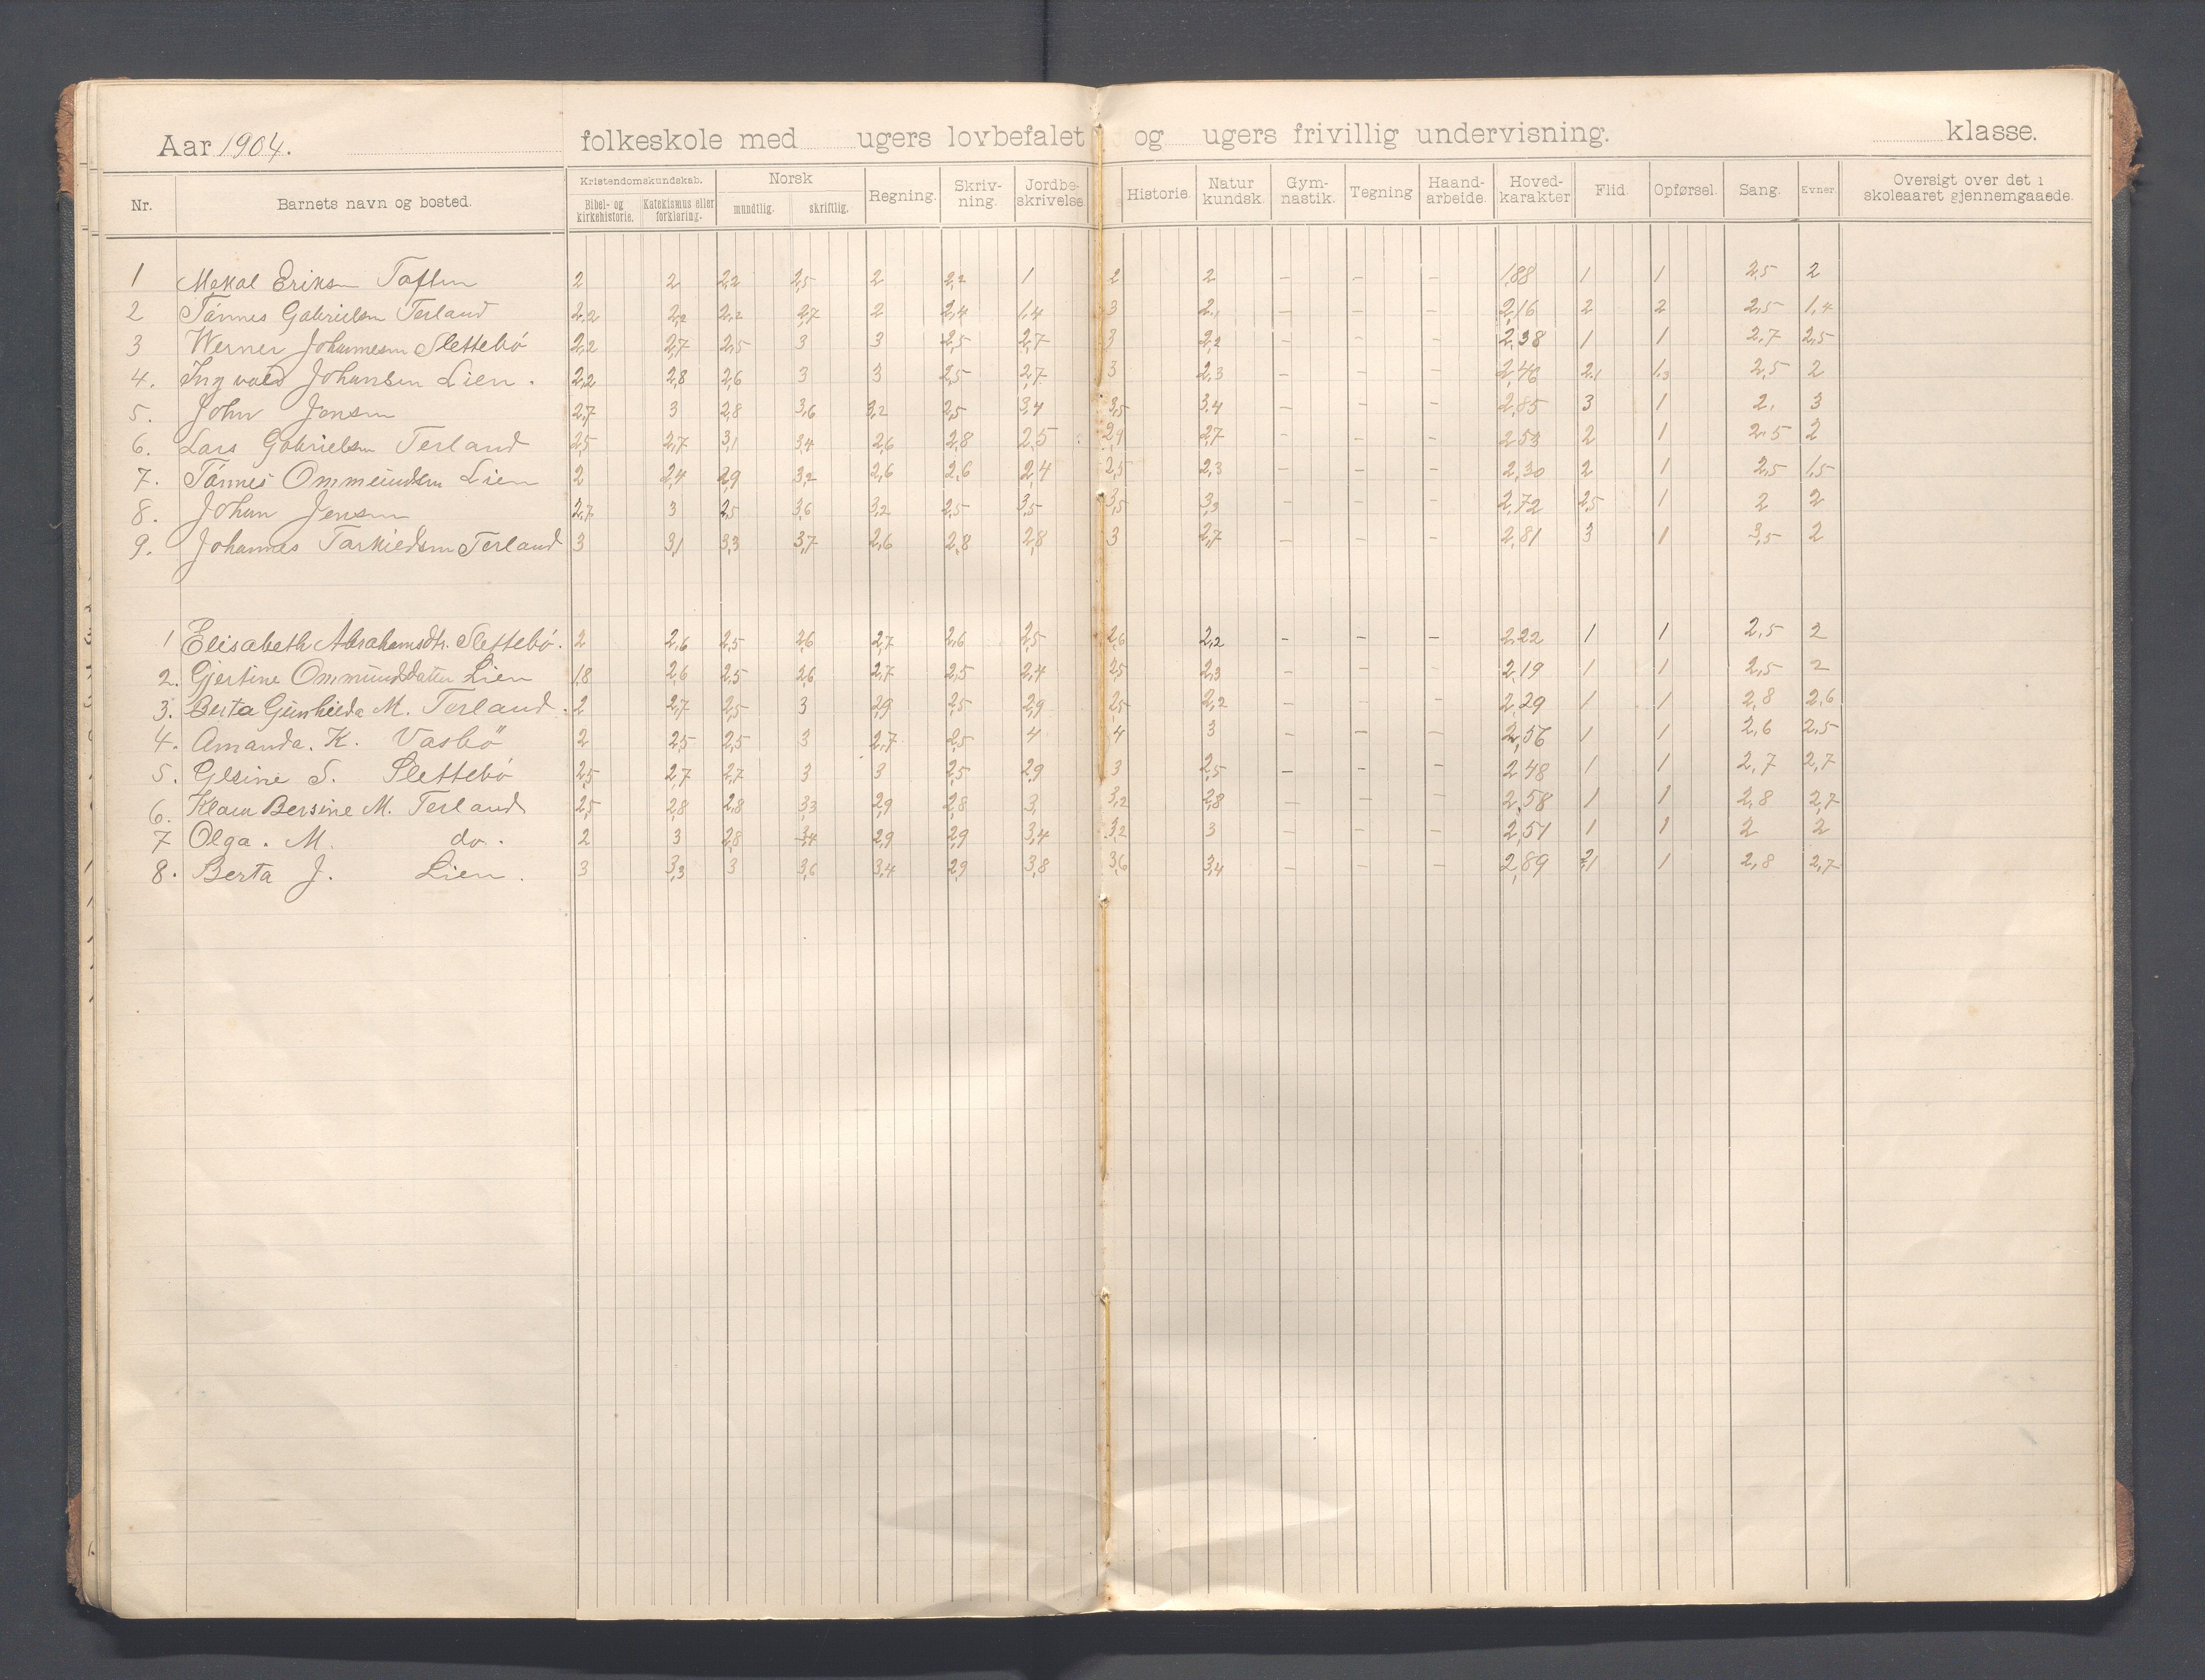 Aar 1904. folkeskole med ugers lovbefalet og ugers frivillig undervisning. klasse.
Nr. Barnets navn og bosted. Kristendomskundskab. Bibel- og kirkehistorie. Katekismus eller forklaring. Norsk mundtlig. skriftlig. Regning. Skriv-ning. Jordbe-skrivelse. Historie. Natur kundsk. Gym-nastik. Tegning Haand-arbeide. Hoved-karakter Flid. Opførsel. Sang. Evner. Oversigt over det i skoleaaret gjennemgaaede.
1 Mekal Eriksen 2 2 2,2 2,5 2 2,2 1 2 2 – – – 1,88 1 1 2,5 2
2 Tönnes Gabrielsen Terland 2,2 2,2 2,2 2,7 2 2,4 1,4 3 2,1 – – – 2,16 2 2 2,5 1,4
3 Werner Johannesen Slettebö 2,2 2,7 2,5 3 3 2,5 2,7 3 2,2 – – – 2,38 1 1 2,7 2,5
4. Ingvald Johansen Lien. 2,2 2,8 2,6 3 3 2,5 2,7 3 2,3 – – – 2,46 2,1 1,3 2,5 2
5. John Jensen 2,7 3 2,8 3,6 3,2 2,5 3,4 3,5 3,4 – – – 2,85 3 1 2, 3
6. Lars Gabrielsen Terland 2,5 2,7 3,1 3,4 2,6 2,8 2,5 2,9 2,7 – – – 2,53 2 1 2,5 2
7. Tönnes Ommundsen Lien 2 2,4 2,9 3,2 2,6 2,6 2,4 2,5 2,3 – – – 2,30 2 1 2,5 1,5
8. Johan Jensen 2,7 3 2,5 3,6 3,2 2,5 3,5 3,5 3,3 – – – 2,72 2,5 1 2 2
9. Johannes Tarkieldsen Terland 3 3,1 3,3 3,7 2,6 2,8 2,8 3 2,7 – – – 2,81 3 1 3,5 2
1 Elisabeth Abrahamsdtr. Slettebö. 2 2,6 2,5 2,6 2,7 2,6 2,5 2,6 2,2 – – – 2,22 1 1 2,5 2
2. Gjertine Ommundsdatter Lien 1,8 2,6 2,5 2,6 2,7 2,5 2,4 2,5 2,3 – – – 2,19 1 1 2,5 2
3. Berta Gunhilde M. Terland. 2 2,7 2,5 3 2,9 2,5 2,9 2,5 2,2 – – – 2,29 1 1 2,8 2,6
4. Amanda. K. Vasbö 2 2,5 2,5 3 2,7 2,5 4 4 3 – – – 2,56 1 1 2,6 2,5
5. Gesine S. Slettebö 2,5 2,7 2,7 3 3 2,5 2,9 3 2,5 – – – 2,48 1 1 2,7 2,7
6. Klara Bersine M. Terland 2,5 2,8 2,8 3,3 2,9 2,8 3, 3,2 2,8 – – – 2,58 1 1 2,8 2,7
7 Olga. M. do. 2 3 2,8 3,4 2,9 2,9 3,4 3,2 3 – – – 2,51 1 1 2 2
8. Berta J. Lien. 3 3,3 3 3,6 3,4 2,9 3,8 3,6 3,4 – – – 2,89 2,1 1 2,8 2,7